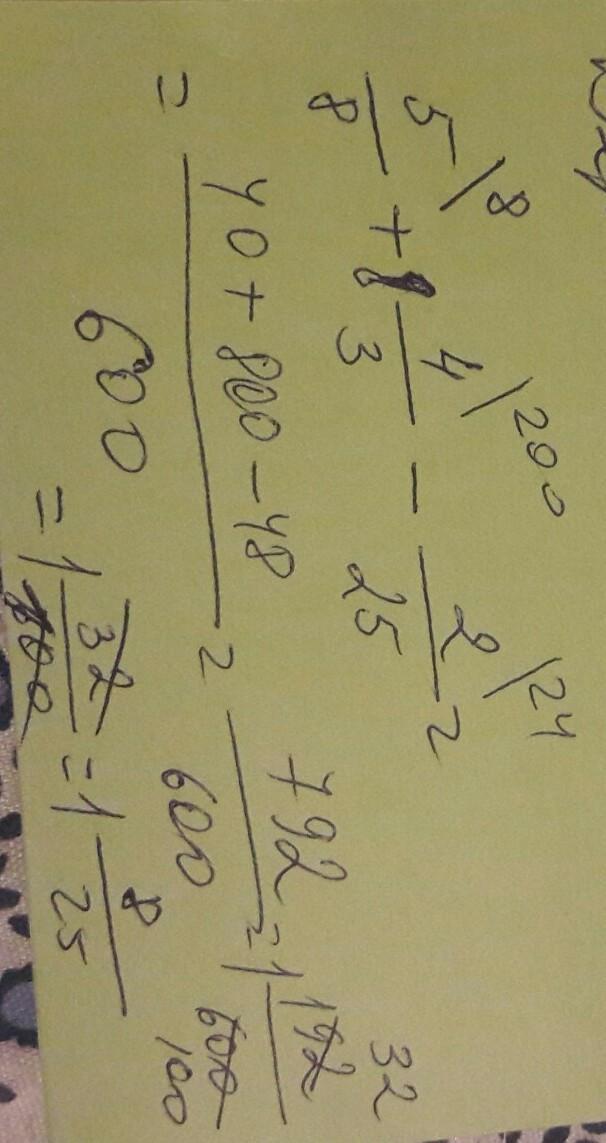 5\8/8 + 4\200/3 - 2\24/25 =
= 40+800-48/600 = 792/600 = 1 192/600 32/100
= 1 32/100 = 1 8/25